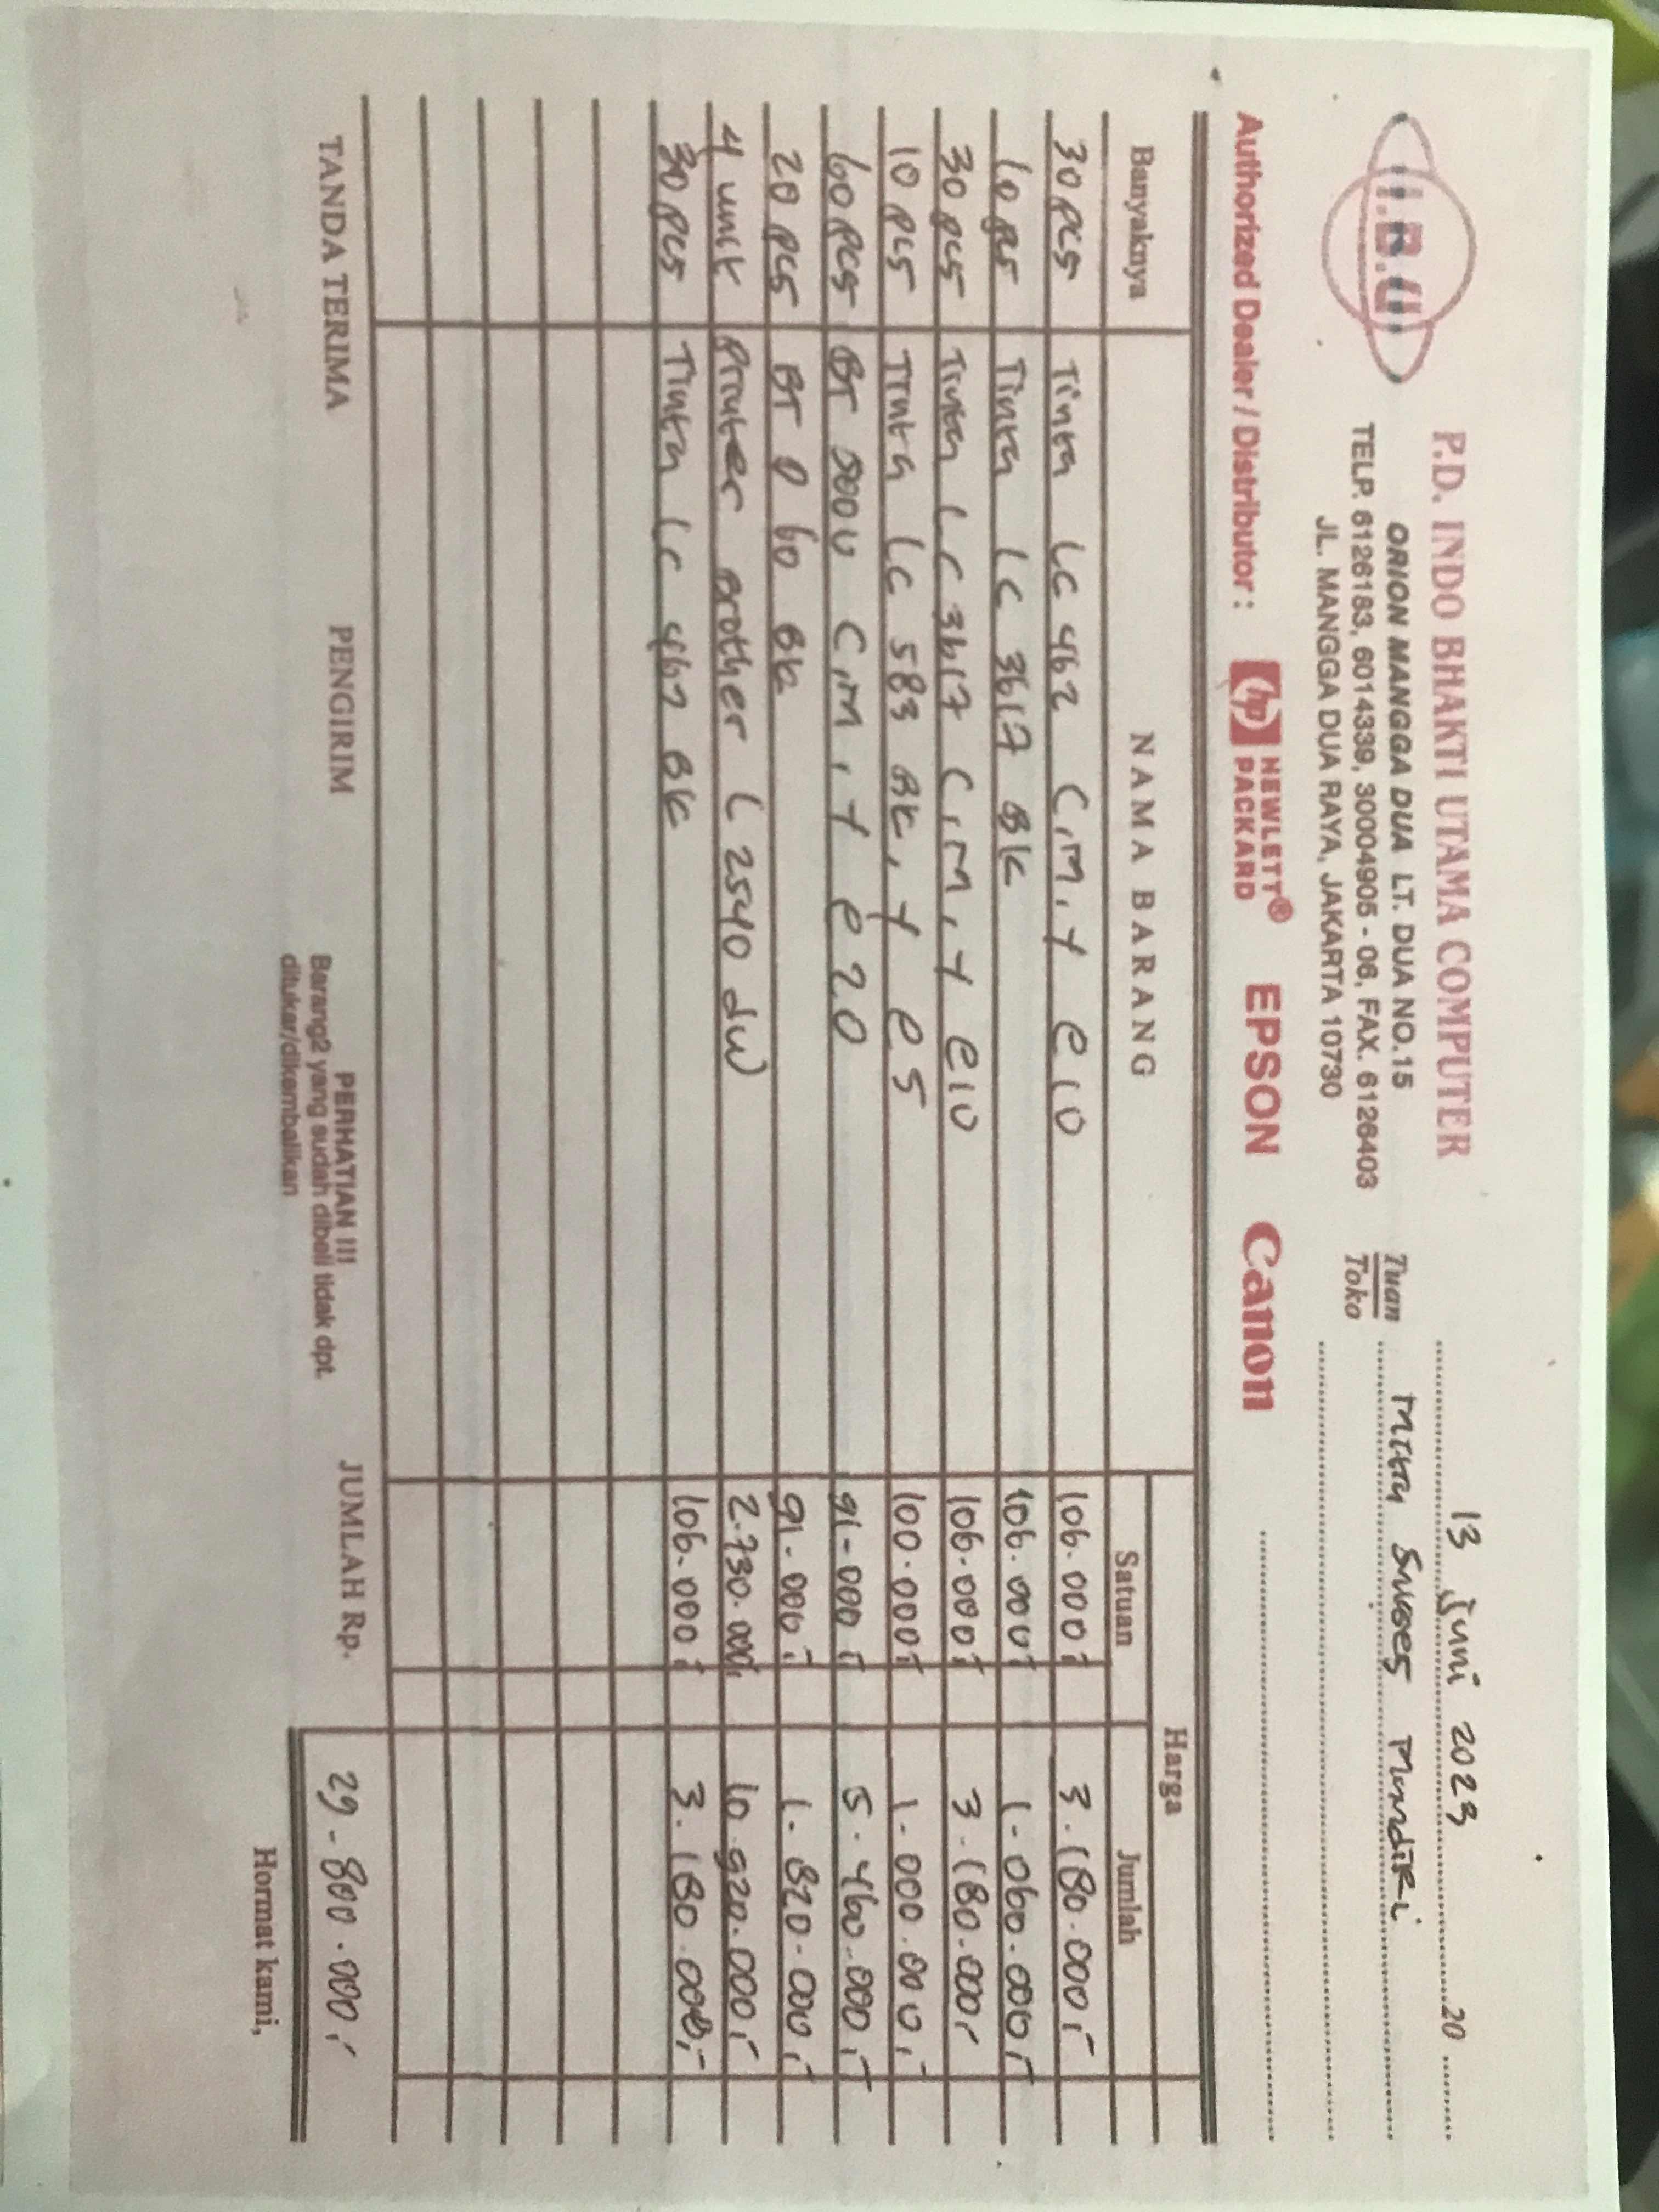 I.B.U
P.D. INDO BHAKTI UTAMA COMPUTER
ORION MANGGA DUA LT. DUA NO.15
TELP. 6126183, 6014339, 3004905 - 06, FAX. 6126403
JL. MANGGA DUA RAYA, JAKARTA 10730
13 Juni 2023 20
Tuan
Toko
Mitra Sukses Mandiri
Authorized Dealer / Distributor : hp HEWLETT® PACKARD EPSON Canon
Banyaknya NAMA BARANG Harga
Satuan Jumlah
30 pcs Tinta LC 462 C,M,Y @10 106.000,- 3.180.000,-
10 pcs Tinta LC 3617 BK 106.000,- 1.060.000,-
30 pcs Tinta LC 3617 C,M,Y @10 106.000,- 3.180.000,-
10 pcs Tinta LC 583 BK,Y @5 100.000,- 1.000.000,-
60 pcs BT 5000 C,M,Y @20 91.000,- 5.460.000,-
20 pcs BT D 60 BK 91.000,- 1.820.000,-
4 unit Printer Brother L 2540 dw 2.730.000,- 10.920.000,-
30 pcs Tinta LC 462 BK 106.000,- 3.180.000,-
TANDA TERIMA PENGIRIM PERHATIAN !!! JUMLAH Rp. 29.800.000,-
Barang2 yang sudah dibeli tidak dpt.
ditukar/dikembalikan
Hormat kami,